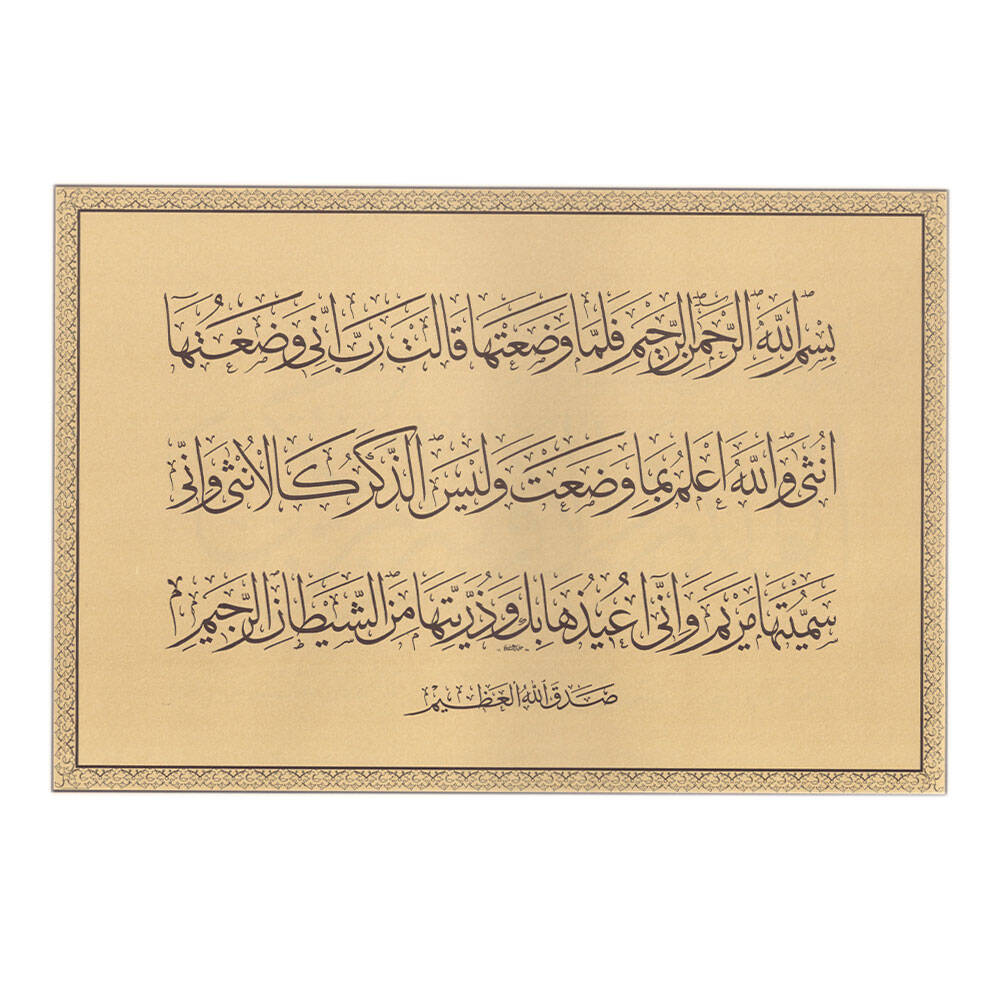 بِسْمِ اللهِ الرَّحْمٰنِ الرَّحِيْمِ فَلَمَّا وَضَعَتْهَا قَالَتْ رَبِّ اِنّٖى وَضَعْتُهَٓا
اُنْثٰى وَاللهُ اَعْلَمُ بِمَا وَضَعَتْ وَلَيْسَ الذَّكَرُ كَالْاُنْثٰى وَاِنّٖى
سَمَّيْتُهَا مَرْيَمَ وَاِنّٖٓى اُعٖيذُهَا بِكَ وَذُرِّيَّتَهَا مِنَ الشَّيْطَانِ الرَّجٖيمِ
صَدَقَ اللهُ الْعَظٖيمُ